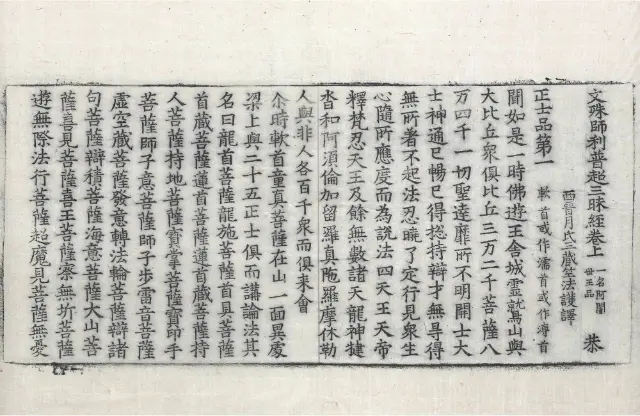 文殊師利普超三昧經卷上 一名阿闍世王品 恭
西晉月氏三藏竺法護譯
正士品第一 軟首或作濡首或作溥首
聞如是一時佛遊王舍城靈鷲山與
大比丘眾俱比丘三万二千菩薩八
万四千一切聖達靡所不明開士大
士神通已暢已得揔持辯才無㝵得
無所著不起法忍曉了定行見衆生
心隨所應度而為說法四天王天帝
釋梵忍天王及餘無數諸天龍神揵
沓和阿湏倫加留羅真陁羅摩休勒
人與非人各百千衆而俱来會
尒時軟首童真菩薩在山一面異處
梁上與二十五正士俱而講論法其
名曰龍首菩薩龍施菩薩首具菩薩
首藏菩薩蓮首菩薩蓮首藏菩薩持
人菩薩持地菩薩寶掌菩薩寶印手
菩薩師子意菩薩師子步雷音菩薩
虛空藏菩薩發意轉法輪菩薩辯諸
句菩薩辯積菩薩海意菩薩大山菩
薩喜見菩薩喜王菩薩察無圻菩薩
遊無際法行菩薩超魔見菩薩無憂